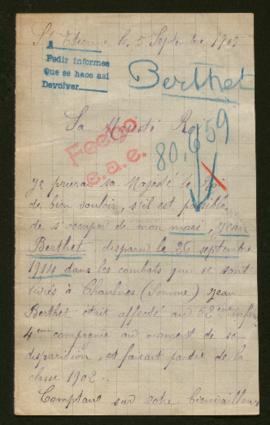 St Etienne le 5 Septembre 1915
A
Pedir informes
Que se hace asi
Devolver
Berthet
Sa Majesté Roi
80,659
Fecgo
e.a.e.
Je prierai sa Majesté le Roi
de bien vouloir, s'il est possible
de s'occuper de mon mari, Jean
Berthet disparu le 26 septembre
1914 dans les combats que se sont
livrés à Chaulnes (Somme) Jean
Berthet était affecté au
4eme compagnie au moment de sa
disparition, et faisant partie de la
classe 1902.
Comptant sur votre bienveillance